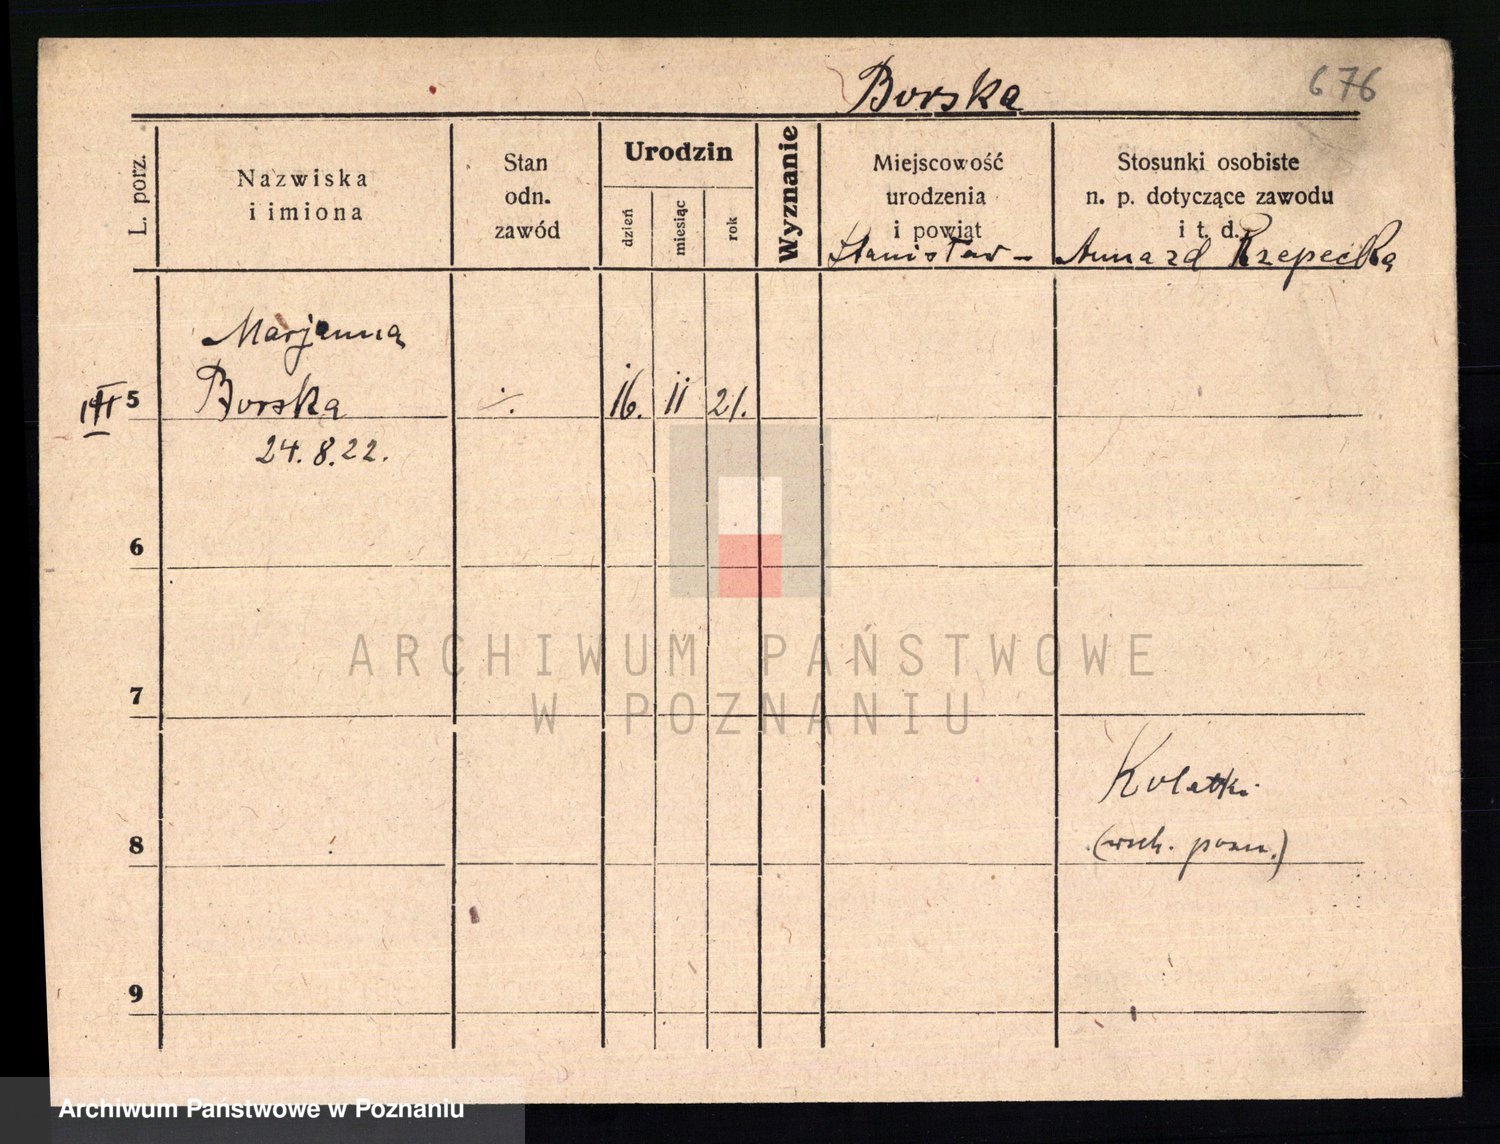 Borska
676
L. porz.
Nazwiska
i imiona
Stan
odn.
zawód
Urodzin
dzień
miesiąc
rok
Wyznanie
Miejscowość
urodzenia
i powiąt
Stosunki osobiste
n. p. dotyczące zawodu
i t. d.
Stanisław - Anna zd Rzepecka
Marjanna
III 5 Borska 16. II 21.
24.8.22.
6
7
8
9
(wsch. pozn.)
ARCHIWUM PAŃSTWOWE
W POZNANIU
Archiwum Państwowe w Poznaniu